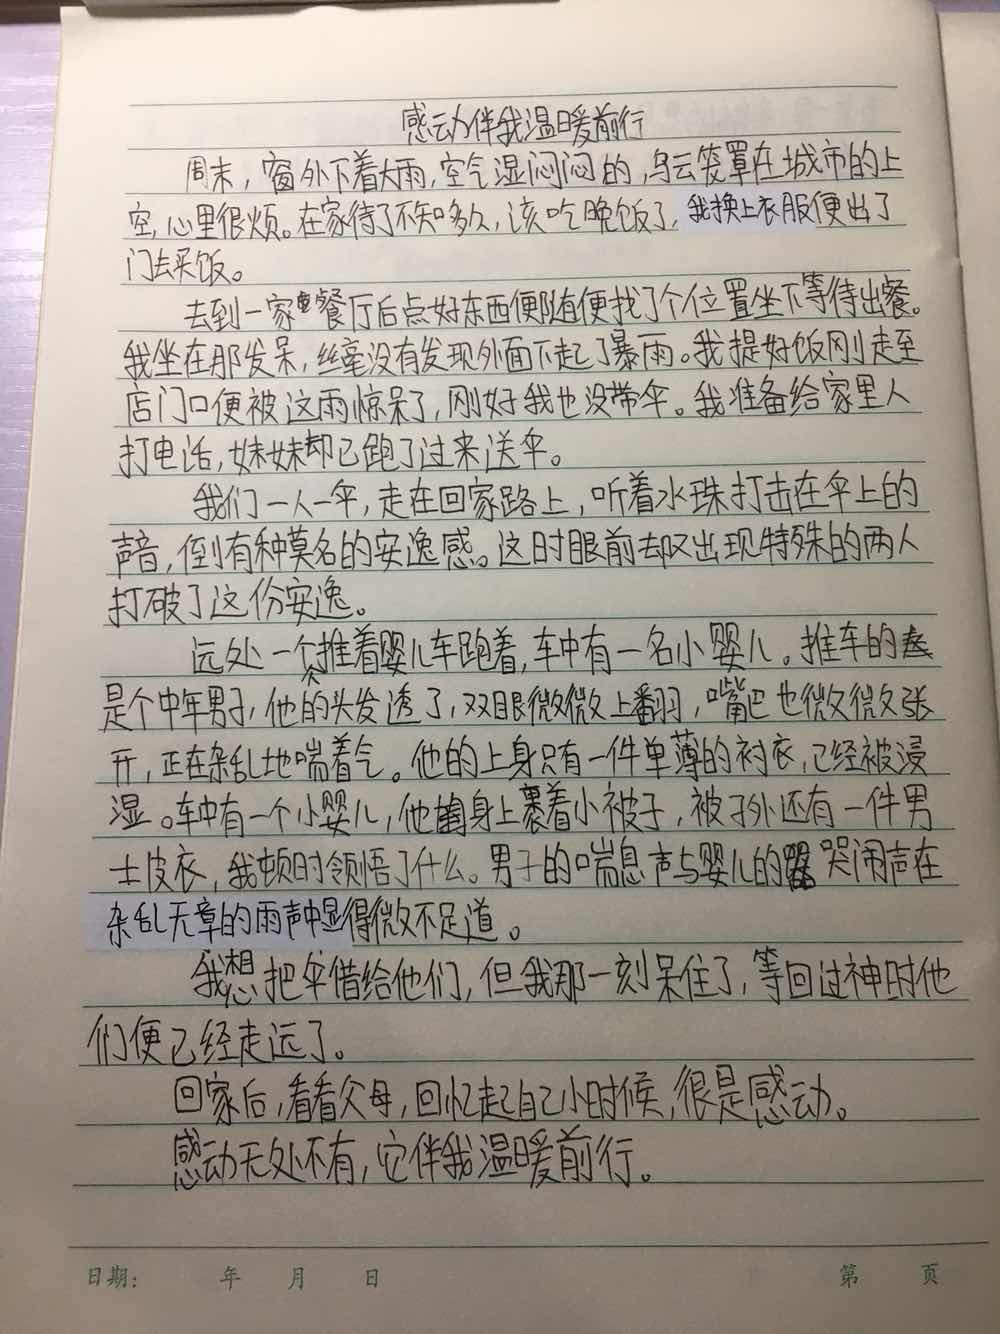 感动伴我温暖前行
周末，窗外下着大雨，空气湿闷闷的，乌云笼罩在城市的上
空，心里很烦。在家待了不知多久，该吃晚饭了，我换上衣服便出了
门去买饭。
去到一家餐厅后点好东西便随便找了个位置坐下等待出餐。
我坐在那发呆，丝毫没有发现外面下起了暴雨。我提好饭刚走至
店门口便被这雨惊呆了，刚好我也没带伞。我准备给家里人
打电话，妹妹却已跑了过来送伞。
我们一人一伞，走在回家路上，听着水珠打击在伞上的
声音，倒有种莫名的安逸感。这时眼前却又出现特殊的两人
打破了这份安逸。
远处一个人推着婴儿车跑着，车中有一名小婴儿。推车的
是个中年男子，他的头发透了，双眼微微上翻，嘴巴也微微张
开，正在杂乱地喘着气。他的上身只有一件单薄的衬衣，已经被浸
湿。车中有一个小婴儿，他身上裹着小被子，被子外还有一件男
士皮衣，我顿时领悟了什么。男子的喘息声与婴儿的哭闹声在
杂乱无章的雨声中显得微不足道。
我想把伞借给他们，但我那一刻呆住了，等回过神时他
们便已经走远了。
回家后，看看父母，回忆起自己小时候，很是感动。
感动无处不有，它伴我温暖前行。
日期： 年 月 日 第 页